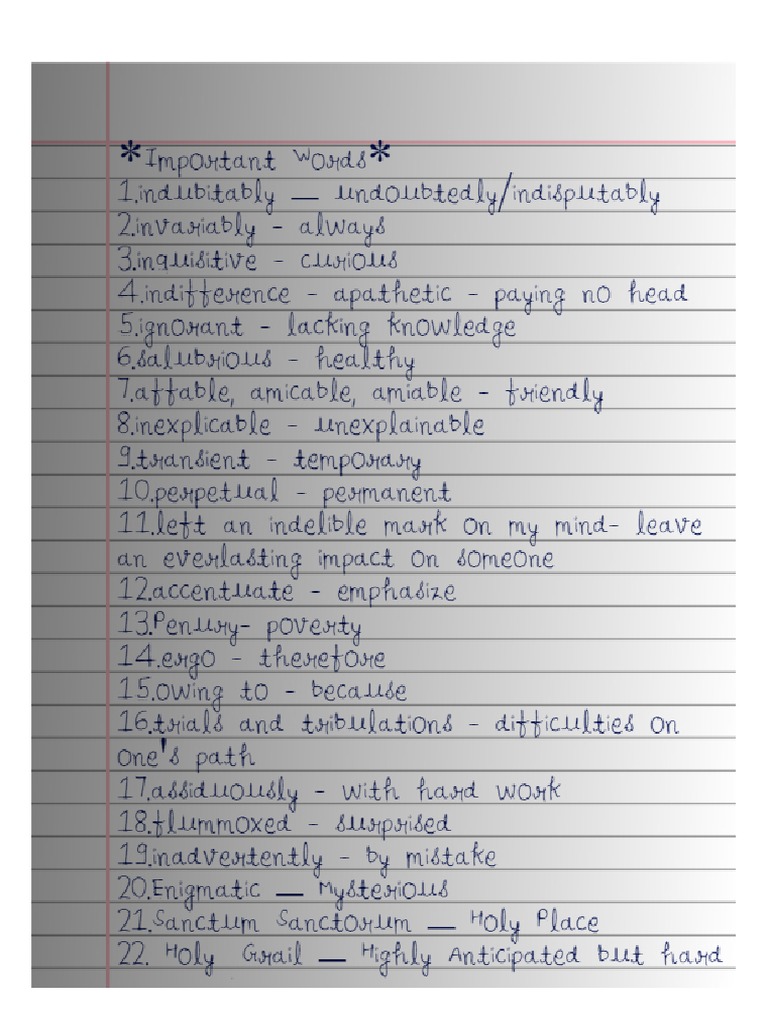 *Important Words*
1.indubitably — undoubtedly/indisputably
2.invariably - always
3.inquisitive - curious
4.indifference - apathetic - paying no head
5.ignorant - lacking knowledge
6.salubrious - healthy
7.affable, amicable, amiable - friendly
8.inexplicable - unexplainable
9.transient - temporary
10.perpetual - permanent
11.left an indelible mark on my mind- leave
an everlasting impact on someone
12.accentuate - emphasize
13.Penury- poverty
14.ergo - therefore
15.owing to - because
16.trials and tribulations - difficulties on
one's path
17.assiduously - with hard work
18.flummoxed - surprised
19.inadvertently - by mistake
20.Enigmatic — Mysterious
21.Sanctum Sanctorum — Holy Place
22. Holy Grail — Highly Anticipated but hard